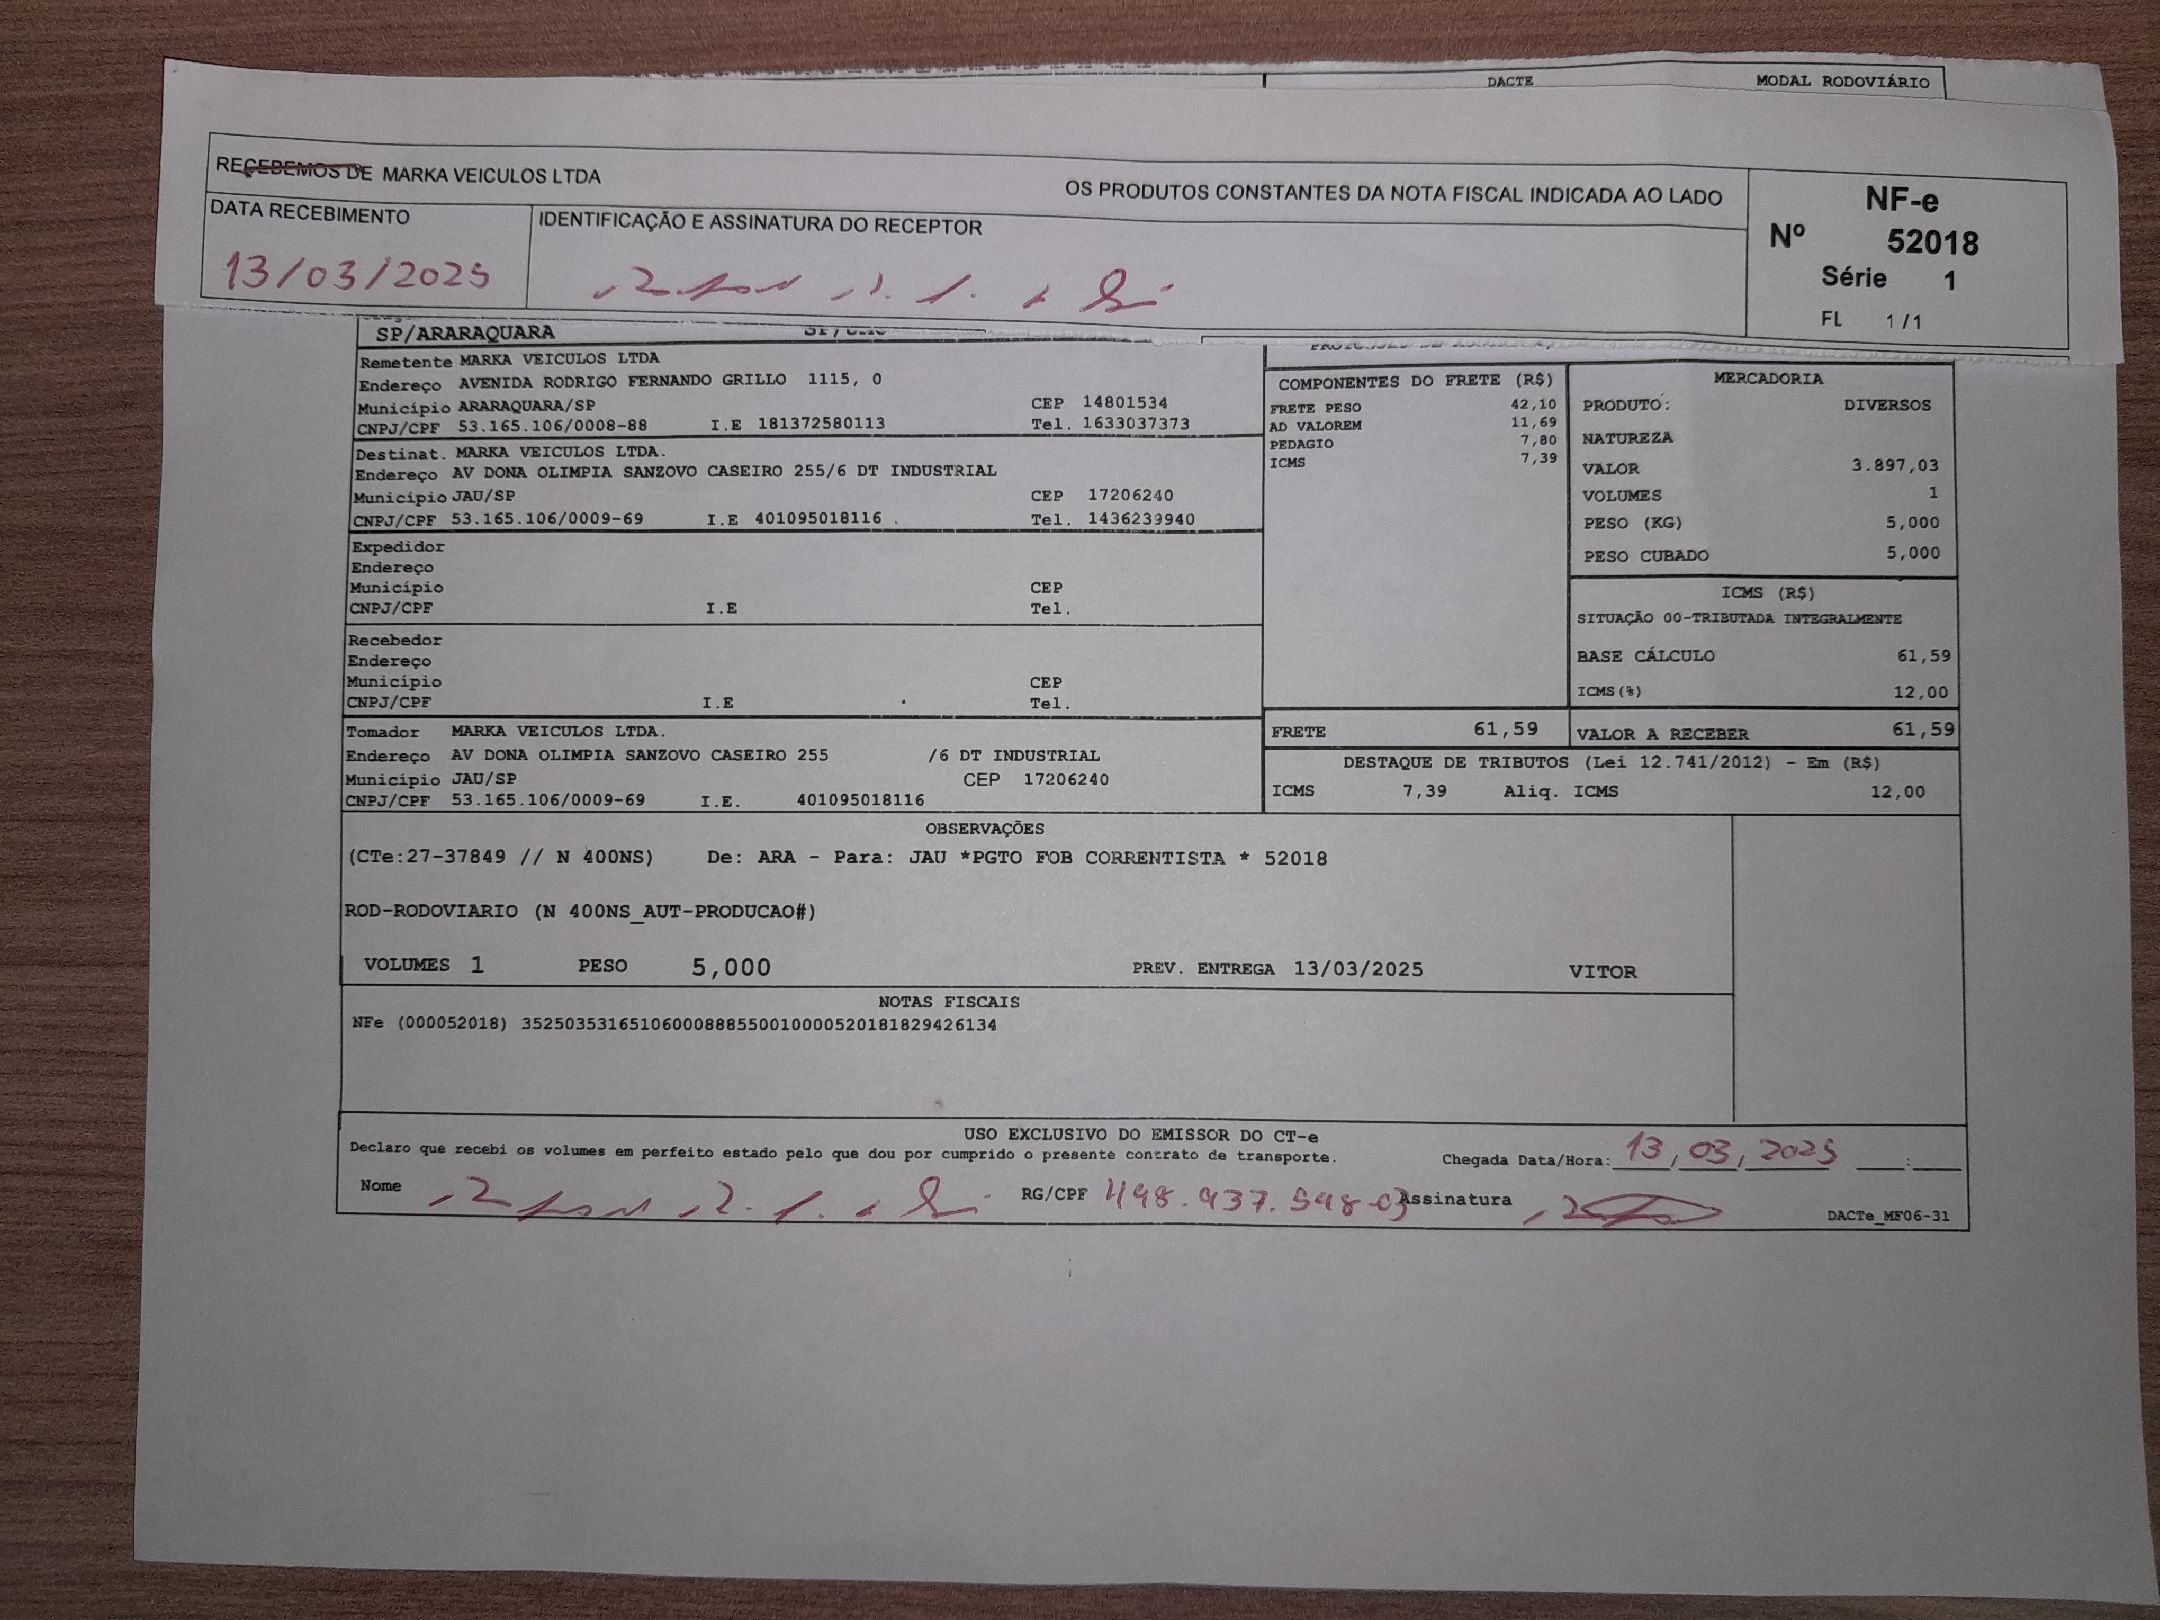 DACTE MODAL RODOVIÁRIO
RECEBEMOS DE MARKA VEICULOS LTDA OS PRODUTOS CONSTANTES DA NOTA FISCAL INDICADA AO LADO
DATA RECEBIMENTO IDENTIFICAÇÃO E ASSINATURA DO RECEPTOR
13/03/2025
NF-e
Nº 52018
Série 1
FL 1/1
SP/ARARAQUARA
Remetente MARKA VEICULOS LTDA
Endereço AVENIDA RODRIGO FERNANDO GRILLO 1115, 0
Município ARARAQUARA/SP CEP 14801534
CNPJ/CPF 53.165.106/0008-88 I.E 181372580113 Tel. 1633037373
Destinat. MARKA VEICULOS LTDA.
Endereço AV DONA OLIMPIA SANZOVO CASEIRO 255/6 DT INDUSTRIAL
Município JAU/SP CEP 17206240
CNPJ/CPF 53.165.106/0009-69 I.E 401095018116 Tel. 1436239940
Expedidor
Endereço
Município CEP
CNPJ/CPF I.E Tel.
Recebedor
Endereço
Município CEP
CNPJ/CPF I.E Tel.
Tomador MARKA VEICULOS LTDA.
Endereço AV DONA OLIMPIA SANZOVO CASEIRO 255 /6 DT INDUSTRIAL
Município JAU/SP CEP 17206240
CNPJ/CPF 53.165.106/0009-69 I.E. 401095018116
COMPONENTES DO FRETE (R$)
FRETE PESO 42,10
AD VALOREM 11,69
PEDAGIO 7,80
ICMS 7,39
MERCADORIA
PRODUTO: DIVERSOS
NATUREZA
VALOR 3.897,03
VOLUMES 1
PESO (KG) 5,000
PESO CUBADO 5,000
ICMS (R$)
SITUAÇÃO 00-TRIBUTADA INTEGRALMENTE
BASE CÁLCULO 61,59
ICMS(%) 12,00
FRETE 61,59 VALOR A RECEBER 61,59
DESTAQUE DE TRIBUTOS (Lei 12.741/2012) - Em (R$)
ICMS 7,39 Aliq. ICMS 12,00
OBSERVAÇÕES
(CTe:27-37849 // N 400NS) De: ARA - Para: JAU *PGTO FOB CORRENTISTA * 52018
ROD-RODOVIARIO (N 400NS_AUT-PRODUCAO#)
VOLUMES 1 PESO 5,000 PREV. ENTREGA 13/03/2025 VITOR
NOTAS FISCAIS
NFe (000052018) 35250353165106000888550010000520181829426134
USO EXCLUSIVO DO EMISSOR DO CT-e
Declaro que recebi os volumes em perfeito estado pelo que dou por cumprido o presente contrato de transporte. Chegada Data/Hora: 13, 03, 2025 __:__
Nome RG/CPF 498.937.548-03 Assinatura
DACTe_MF06-31